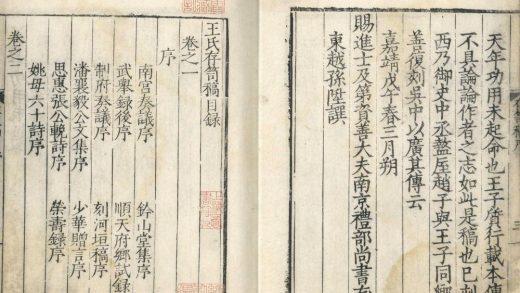 天年功用未起命也王子齊行載本傳
不具論論作者之志如此是稿也已刻
西乃御史中丞盩厔趙子與王子同鄉
善復刻吳中以廣其傳云
嘉靖戊午春三月朔
賜進士及第資善大夫南京禮部尚書
東越孫陞譔
王氏存笥稿目錄
卷之一
序
南宮奏議序
鈐山堂集序
武舉錄後序
順天府鄉試錄
制府奏議序
刻河垣稿序
潘襄毅公文集序
少華贈言序
思惠張公輓詩序
榮壽錄序
姚母六十詩序
卷之二